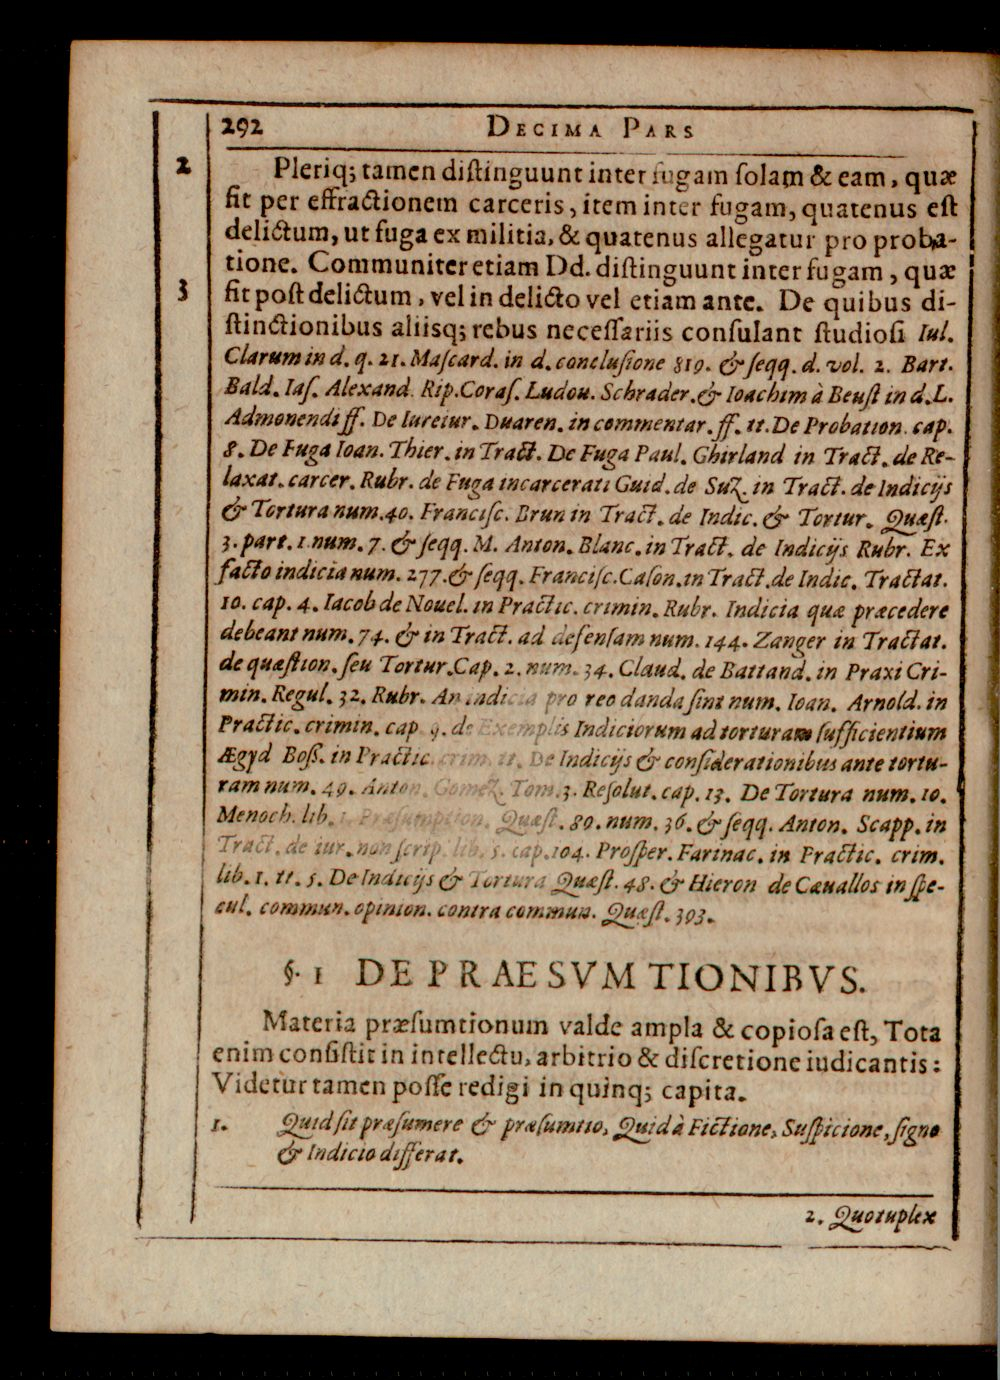 292 DECIMA PARS
2 Pleriq; tamen diſtinguunt inter fugam ſolam & eam, quæ
fit per effractionem carceris, item inter fugam, quatenus eſt
delictum, ut fuga ex militia, & quatenus allegatur pro proba-
tione. Communiter etiam Dd. diſtinguunt inter fugam, quæ
3 fit poſt delictum, vel in delicto vel etiam ante. De quibus di-
ſtinctionibus aliisq; rebus neceſſariis conſulant ſtudioſi Iul.
Clarum in d. q. 21. Maſcard. in d. concluſione 819. & ſeqq. d. vol. 2. Bart.
Bald. Iaſ. Alexand. Rip. Coraſ. Ludou. Schrader. & Ioachim à Beuſt in d. L.
Admonendi ff. De Iureiur. Duaren. in commentar. ff. tt. De Probation. cap.
8. De Fuga Ioan. Thier. in Tract. De Fuga Paul. Ghirland in Tract. de Re-
laxat. carcer. Rubr. de Fuga incarcerati Guid. de Suz. in Tract. de Indicijs
& Tortura num. 40. Franciſc. Brun in Tract. de Indic. & Tortur. Quæſt.
3. part. 1 num. 7. & ſeqq. M. Anton. Blanc. in Tract. de Indicijs Rubr. Ex
facto indicia num. 277. & ſeqq. Franciſc. Caſon. in Tract. de Indic. Tractat.
10. cap. 4. Iacob de Nouel. in Practic. crimin. Rubr. Indicia quæ præcedere
debeant num. 74. & in Tract. ad defenſam num. 144. Zanger in Tractat.
de quæſtion. ſeu Tortur. Cap. 2. num. 34. Claud. de Battand. in Praxi Cri-
min. Regul. 32. Rubr. An indicia pro reo danda ſint num. Ioan. Arnold. in
Practic. crimin. cap. 9. de Exemplis Indiciorum ad torturam ſufficientium
Ægyd Boſſ. in Practic. crim. tt. De Indicijs & conſiderationibus ante tortu-
ram num. 49. Anton. Gomez. Tom. 3. Reſolut. cap. 13. De Tortura num. 10.
Menoch. lib. 1. Præſumption. Quæſt. 89. num. 36. & ſeqq. Anton. Scapp. in
Tract. de iur. non ſcrip. lib. 5. cap. 104. Proſper. Farinac. in Practic. crim.
lib. 1. tt. 5. De Indicijs & Tortura Quæſt. 48. & Hieron de Cæuallos in ſpe-
cul. commun. opinion. contra commun. Quæſt. 393.
§. 1 DE PRAESVMTIONIBVS.
Materia præſumtionum valde ampla & copioſa eſt, Tota
enim conſiſtit in intellectu, arbitrio & diſcretione iudicantis:
Videtur tamen poſſe redigi in quinq; capita.
1. Quid ſit præſumere & præſumtio, Quid à Fictione, Suſpicione, ſigno
& Indicio differat.
2. Quotuplex